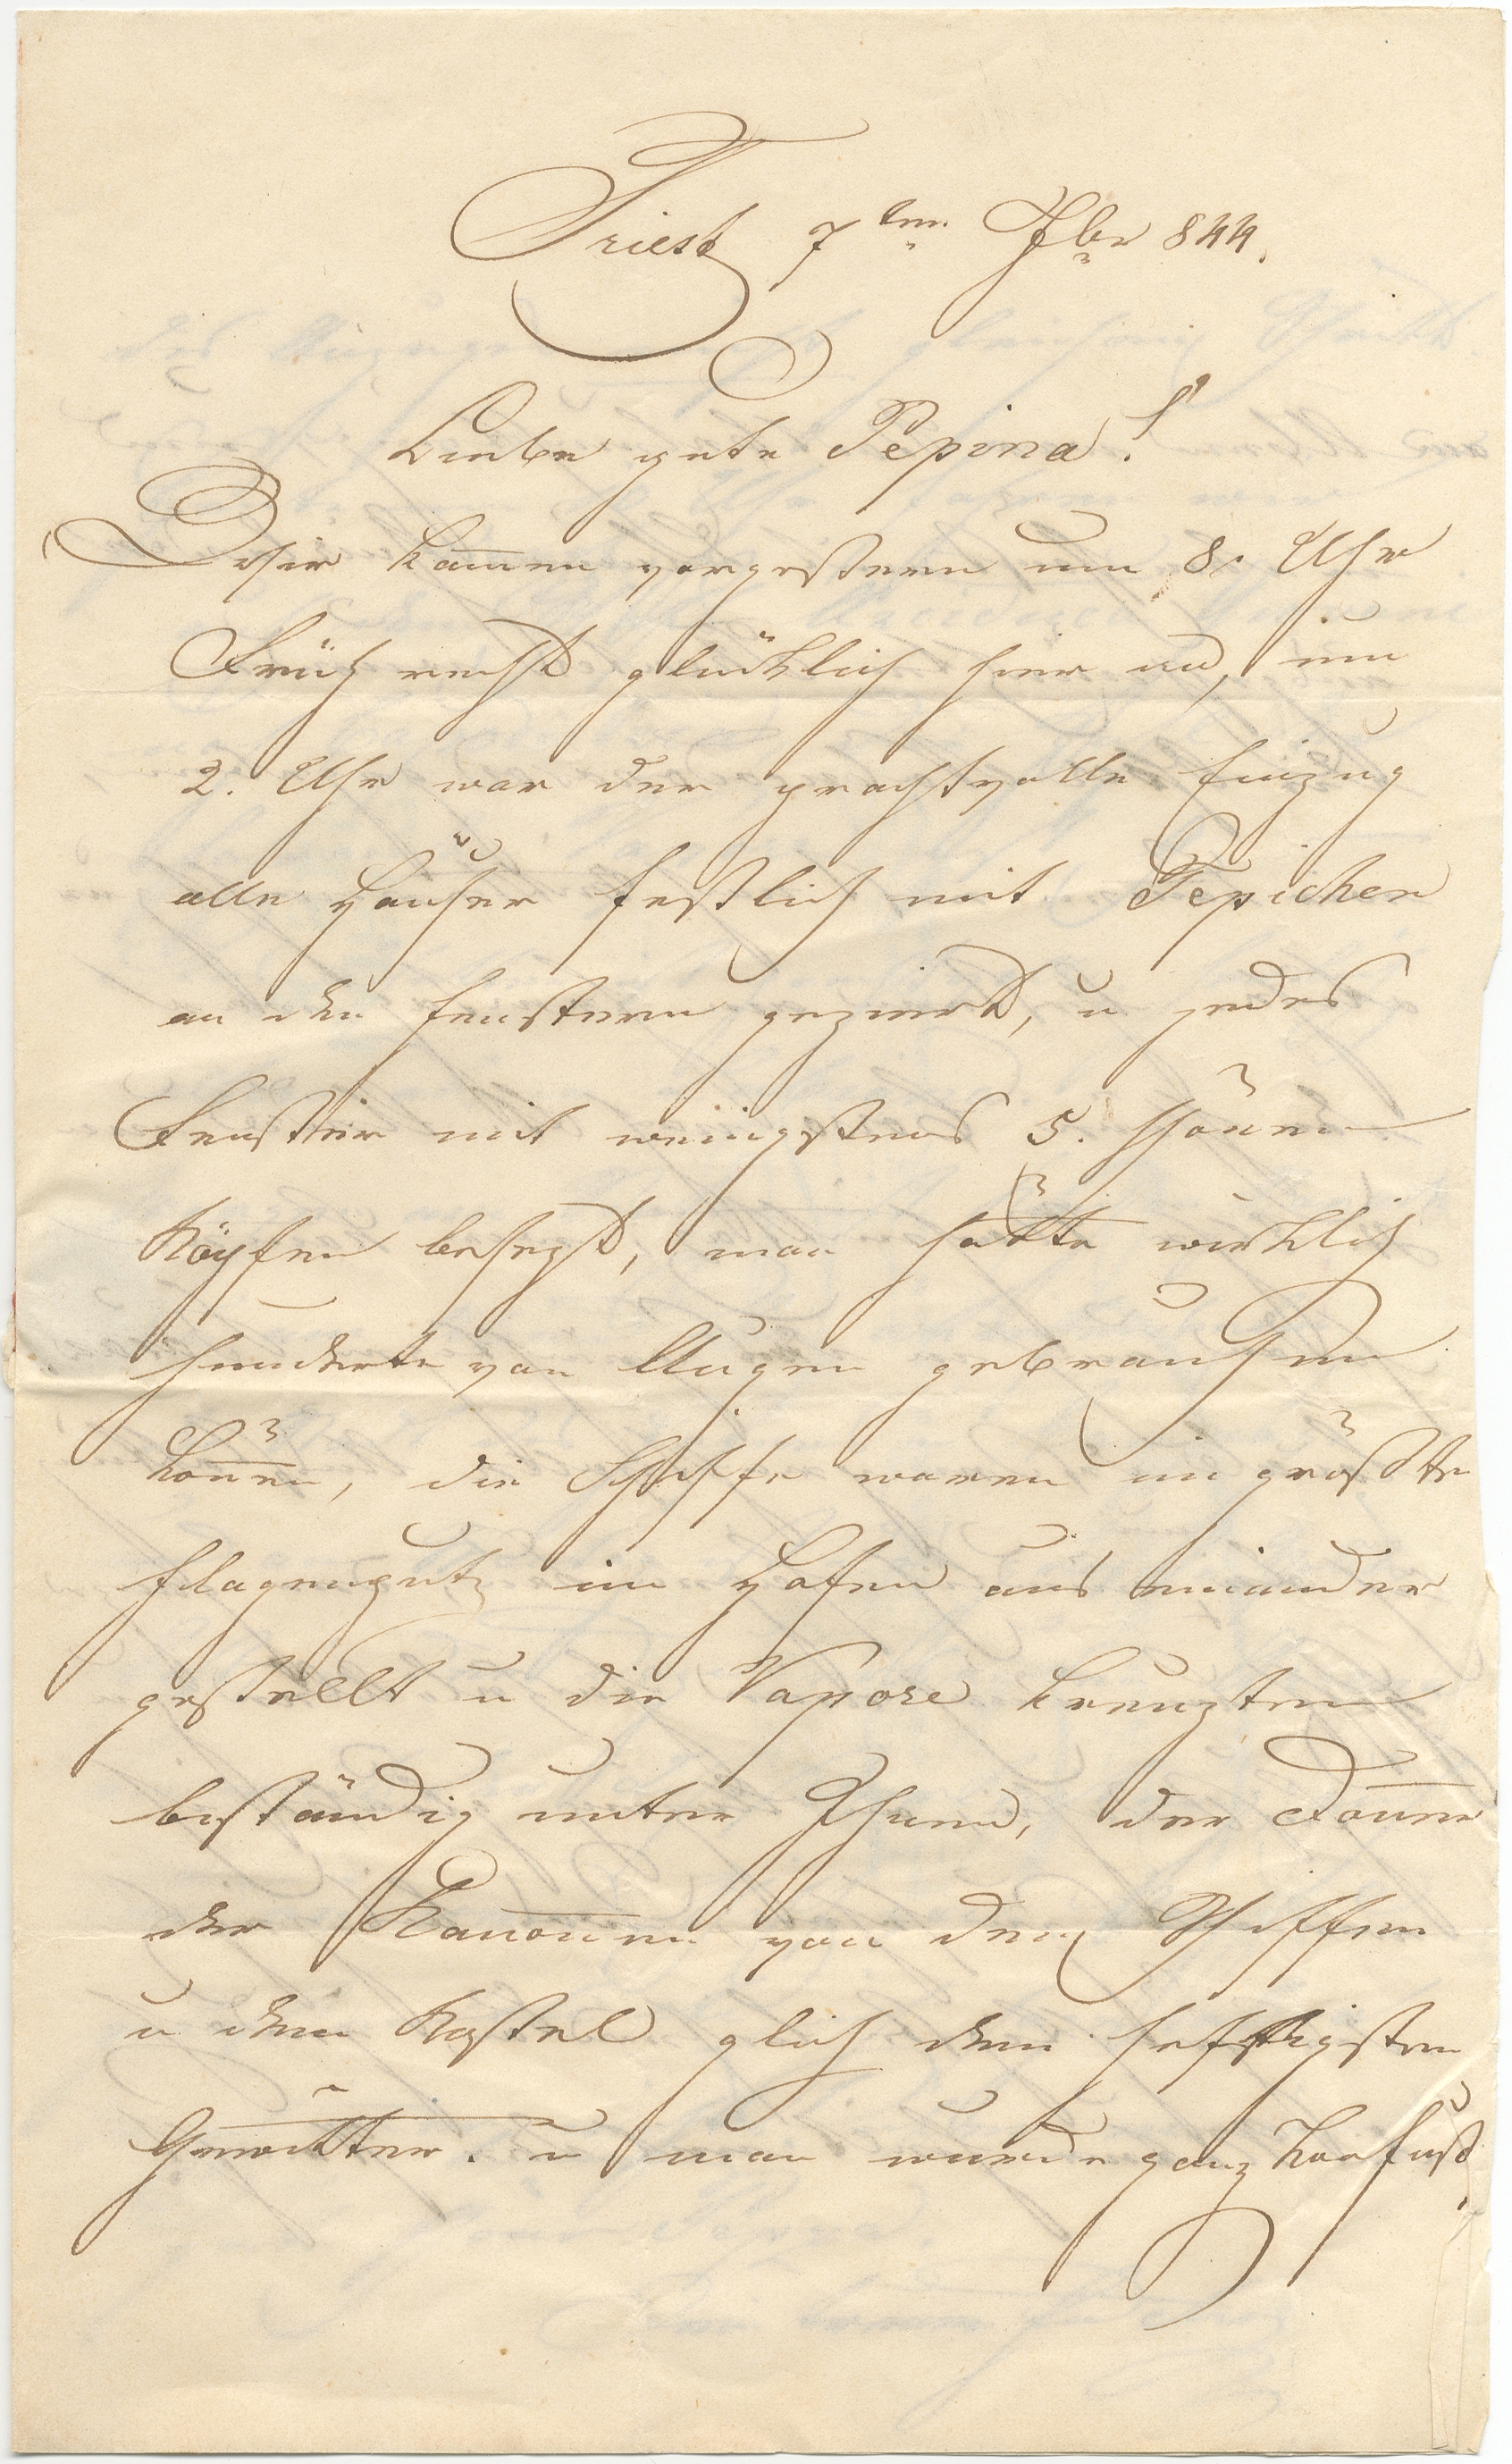 Triest 7ten 7br 844.
Liebe gute Pepina!
Wir kamen vorgestern um 8. Uhr
Früh recht glücklich hier an, um
2. Uhr war der prachtvolle Einzug
alle Häuser festlich mit Tepichen
an den Fenstern geziert, u jedes
Fenster mit wenigstens 5. schönen
Köpfen besezt, man hätte wirklich
hunderte von Augen gebrauchen
können, die Schiffe waren im größten
Flagenputz im Hafen aus einander
gestellt u die Vapore kreuzten
beständig unter Ihnen, der Donner
der Kanonen von den Schiffen
u dem Kastel glich dem heftigsten
Gewitter. u man wurde ganz konfus